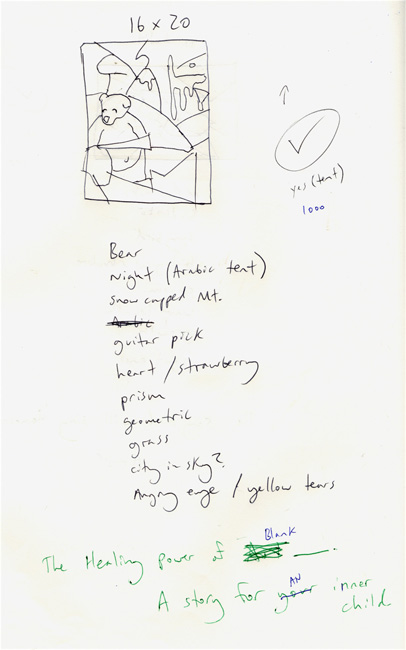 16 x 20
yes (tent)
1000
Bear
Night (Arabic tent)
snow capped Mt.
Arabic
guitar pick
heart / strawberry
prism
geometric
grass
city in sky?
Angry / yellow tears
Blank
The Healing power of ___.
AN
A story for your inner
child